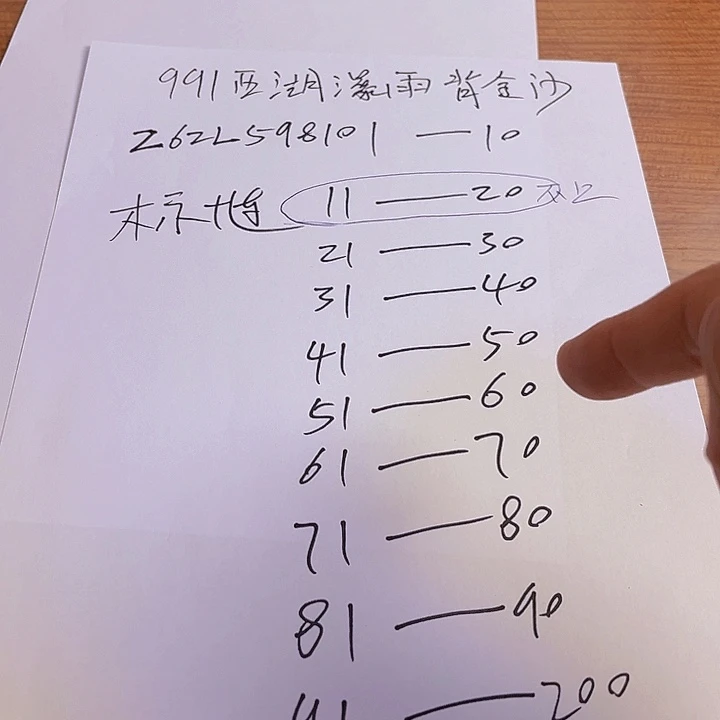 991西湖瀑雨背金沙
Z62L598101 — 10
标博 11 — 20
21 — 30
31 — 40
41 — 50
51 — 60
61 — 70
71 — 80
81 — 90
91 — 200